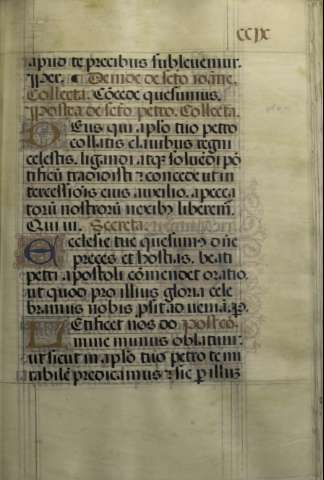 ccix
apud te precibus subleuemur.
Per. Deinde de scto ioãne.
Collecta. Cõcede quesumus.
Postea de scto petro. Collecta.
Deus qui aplo tuo petro
collatis clauibus regni
celestis. ligandi atqȝ soluẽdi põ
tificiũ tradidisti: concede ut in
tercessiõis eius auxilio. a pecca
torũ nostrorũ nexibȝ liberem̃.
Qui ui. Secreta.
Ecclesie tue quesumȝ dñe
preces et hostias. beati
petri apostoli cõmendet oratio
ut quod pro illius gloria cele
bramus nobis psit ad ueniã. p.
Letificet nos do postcõ.
mine munus oblatum:
ut sicut in aplo tuo petro te mi
rabilẽ predicamus: sic p illius